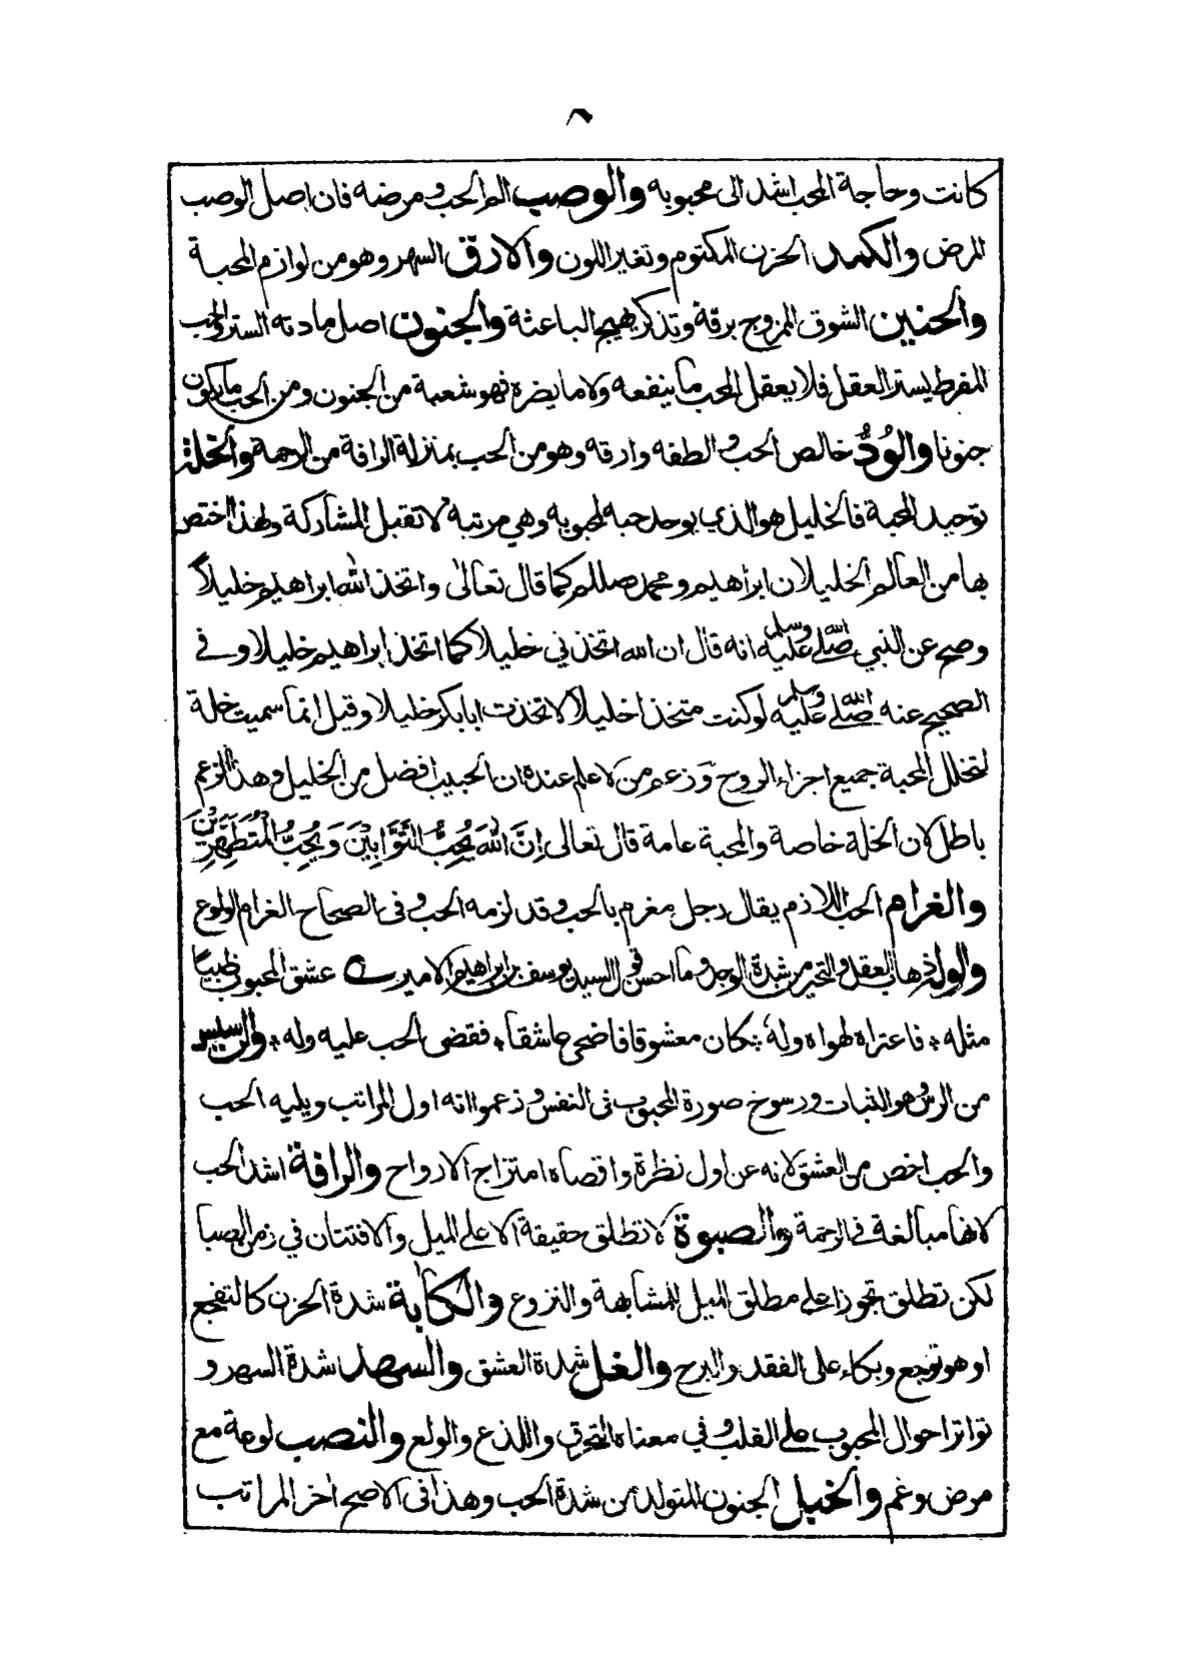 ٨
كانت وحاجة المحب اشد الى محبوبه والوصب الم الحب ومرضه فان اصل الوصب
المرض والكمد الحزن المكتوم وتغير اللون والارق السهر وهو من لوازم المحبة
والحنين الشوق الممزوج برقة وتذكر يهيج الباعثة والجنون اصل مادته الستر والحب
المفرط يستر العقل فلا يعقل المحب ما ينفعه ولا ما يضره فهو شعبة من الجنون ومن الحب ما يكون
جنونا والوُدُّ خالص الحب والطفه وارقه وهو من الحب بمنزلة الرافة من الرحمة والخلة
توحيد المحبة فالخليل هو الذي يوحد حبه لمحبوبه وهي مرتبة لا تقبل المشاركة ولهذا اختص
بها من العالم الخليلان ابراهيم ومحمد صللم كما قال تعالى واتخذ الله ابراهيم خليلاً
وصح عن النبي صلى الله عليه وسلم انه قال ان الله اتخذني خليلا كما اتخذ ابراهيم خليلا وفي
الصحيح عنه صلى الله عليه وسلم لو كنت متخذا خليلاً لاتخذت ابا بكر خليلا وقيل انما سميت خلة
لتخلل المحبة جميع اجزاء الروح وزعم من لا علم عنده ان الحبيب افضل من الخليل وهذا الزعم
باطل لان الخلة خاصة والمحبة عامة قال تعالى اِنَّ اللهَ يُحِبُّ التَّوَّابِيْنَ وَيُحِبُّ الْمُتَطَهِّرِيْنَ
والغرام الحب اللازم يقال رجل مغرم بالحب وقد لزمه الحب وفى الصحاح الغرام الولوع
والوله ذهاب العقل والتحير من شدة الوجد وما احسن قول السيد يوسف بن ابراهيم الامير عشق المحبوب ظبياً
مثله فاعتراه لهواه ولهٌ كان معشوقا فاضحى عاشقا فقضى الحب عليه وله والرسيس
من الرس هو الثبات ورسوخ صورة المحبوب فى النفس وزعموا انه اول المراتب ويليه الحب
والحب اخص من العشق لانه عن اول نظرة واقصاه امتزاج الارواح والرافة اشد الحب
لانها مبالغة فى الرحمة والصبوة لا تطلق حقيقة الا على الميل والافتتان في زمن الصبا
لكن تطلق تجوزا على مطلق الميل للمشابهة والنزوع والكآبة شدة الحزن كالتفجع
او هو توجع وبكاء على الفقد والبرح والغل شدة العشق والسهد شدة السهر و
تواتر احوال المحبوب على القلب وفي معناه التحرق واللذع والولع والنصب لوعة مع
مرض وغم والخبل الجنون المتولد من شدة الحب وهذا فى الاصح اخر المراتب